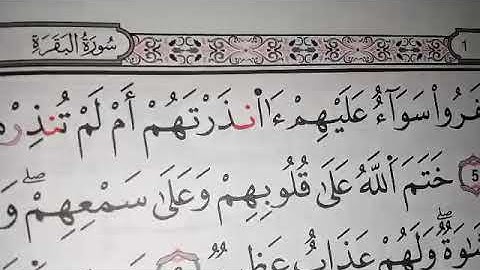 سُورَةُ البَقَرَةِ 1
فَرُوا۟ سَوَآءٌ عَلَيْهِمْ ءَأَنذَرْتَهُمْ أَمْ لَمْ تُنذِرْه
5 خَتَمَ ٱللَّهُ عَلَىٰ قُلُوبِهِمْ وَعَلَىٰ سَمْعِهِمْ ۖ وَ
شَٰوَةٌ ۖ وَلَهُمْ عَذَابٌ عَظِيمٌ